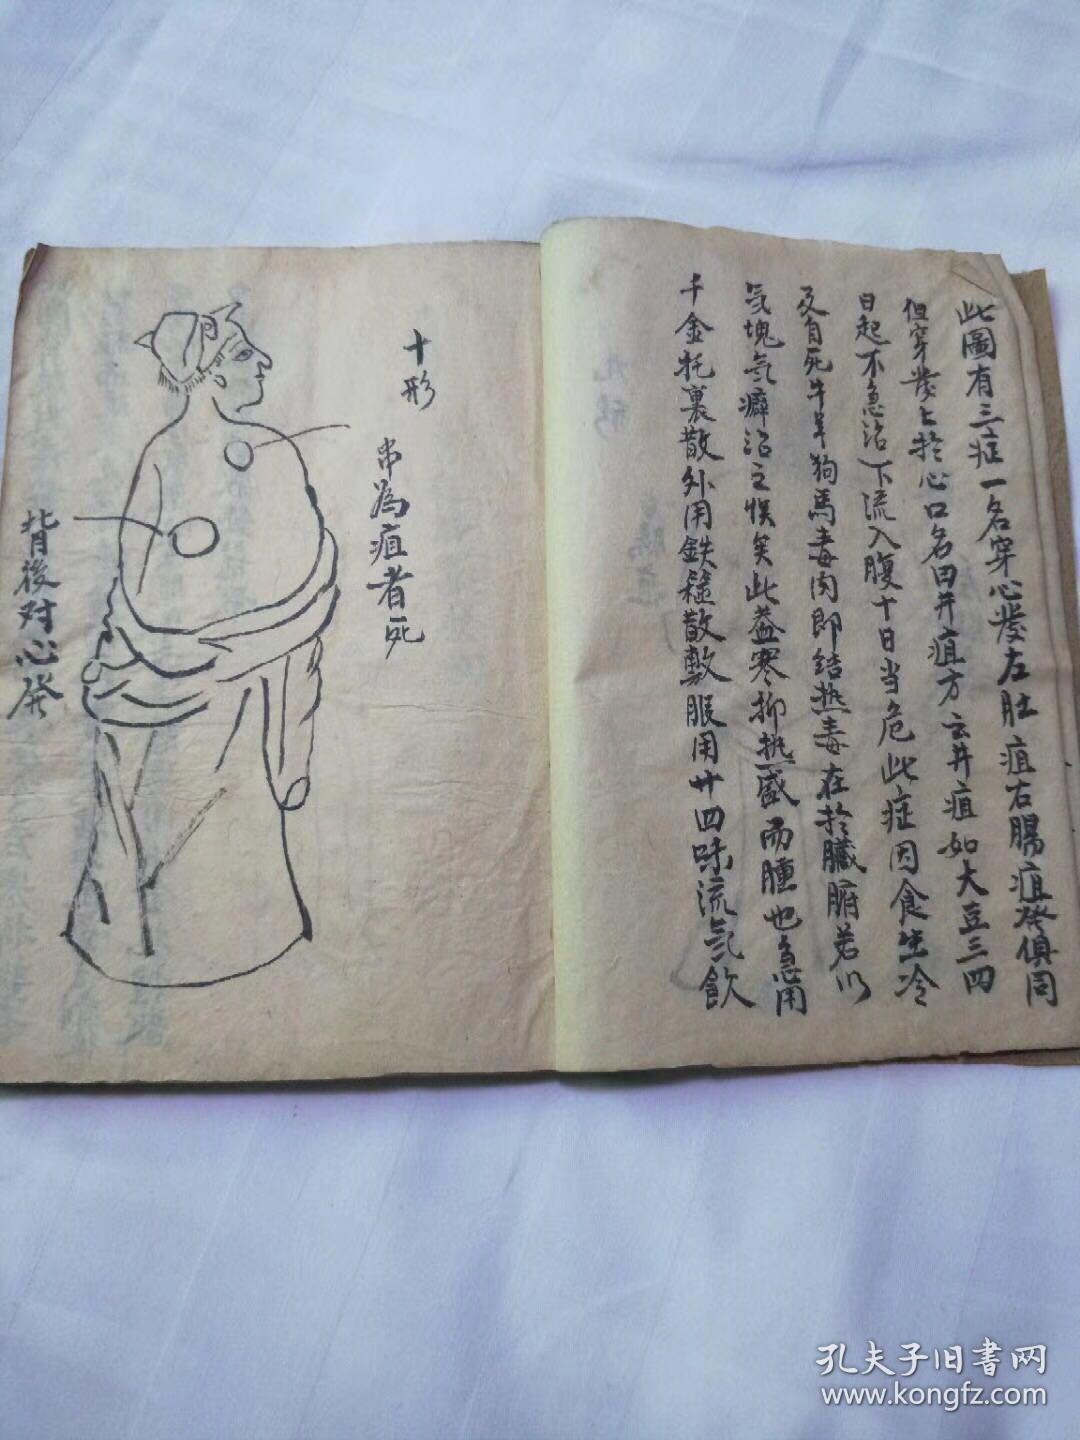 此圖有三症一名穿心發左肚疽右腸疽發俱同
但穿發上於心口名曰井疽方云井疽如大豆三四
日起不急治下流入腹十日当危此症因食生冷
及自死牛羊狗馬毒肉即结热毒在於臟腑若以
気塊気癖治之悞矣此益寒抑热盛而腫也急用
千金托裏散外用鉄箍散敷服用廿四味流気飲
十形
為疽者死
背後对心發
孔夫子旧書网
www.kongfz.com